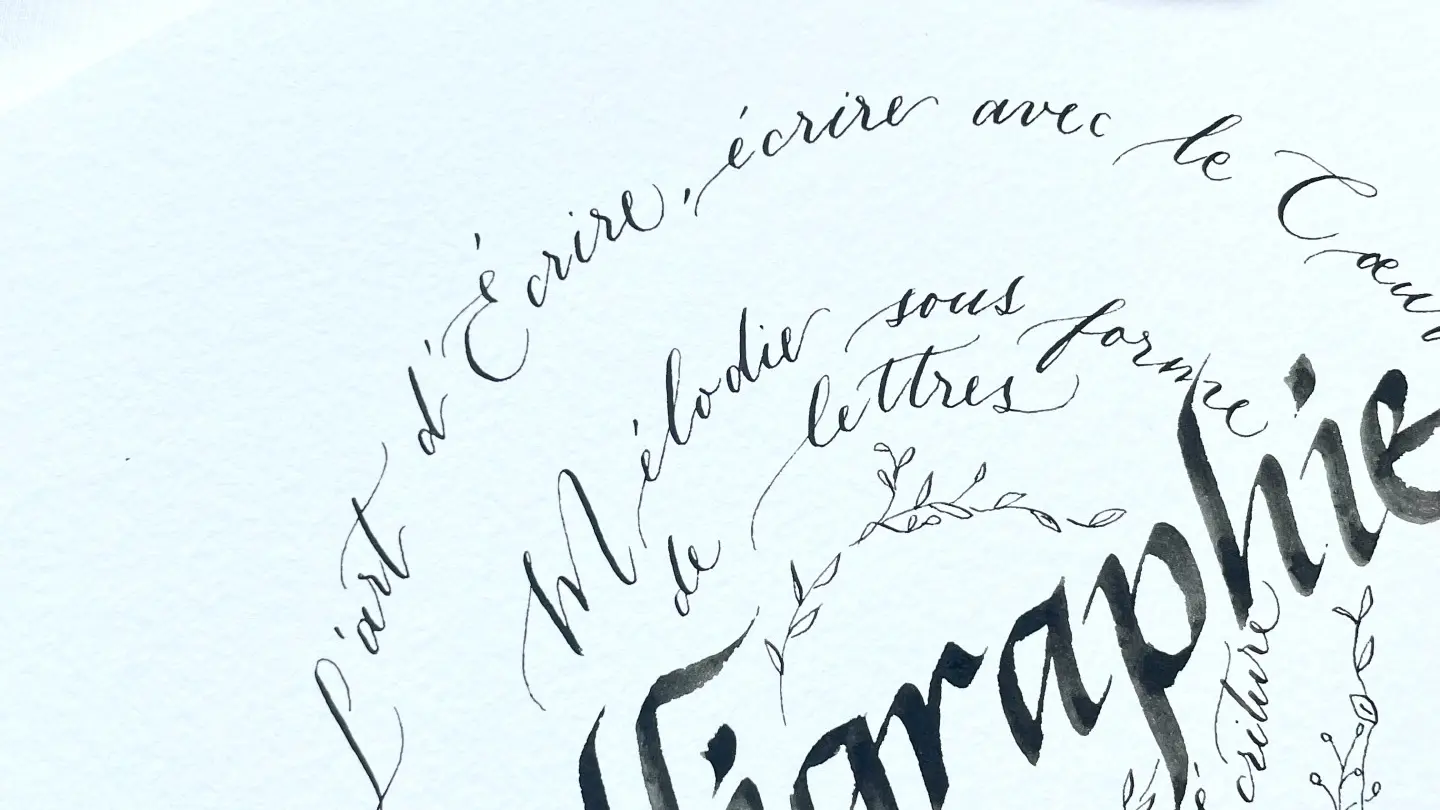 L'art d'Écrire, écrire avec le Cœur
Mélodie sous forme
de lettres
ligraphie
écriture